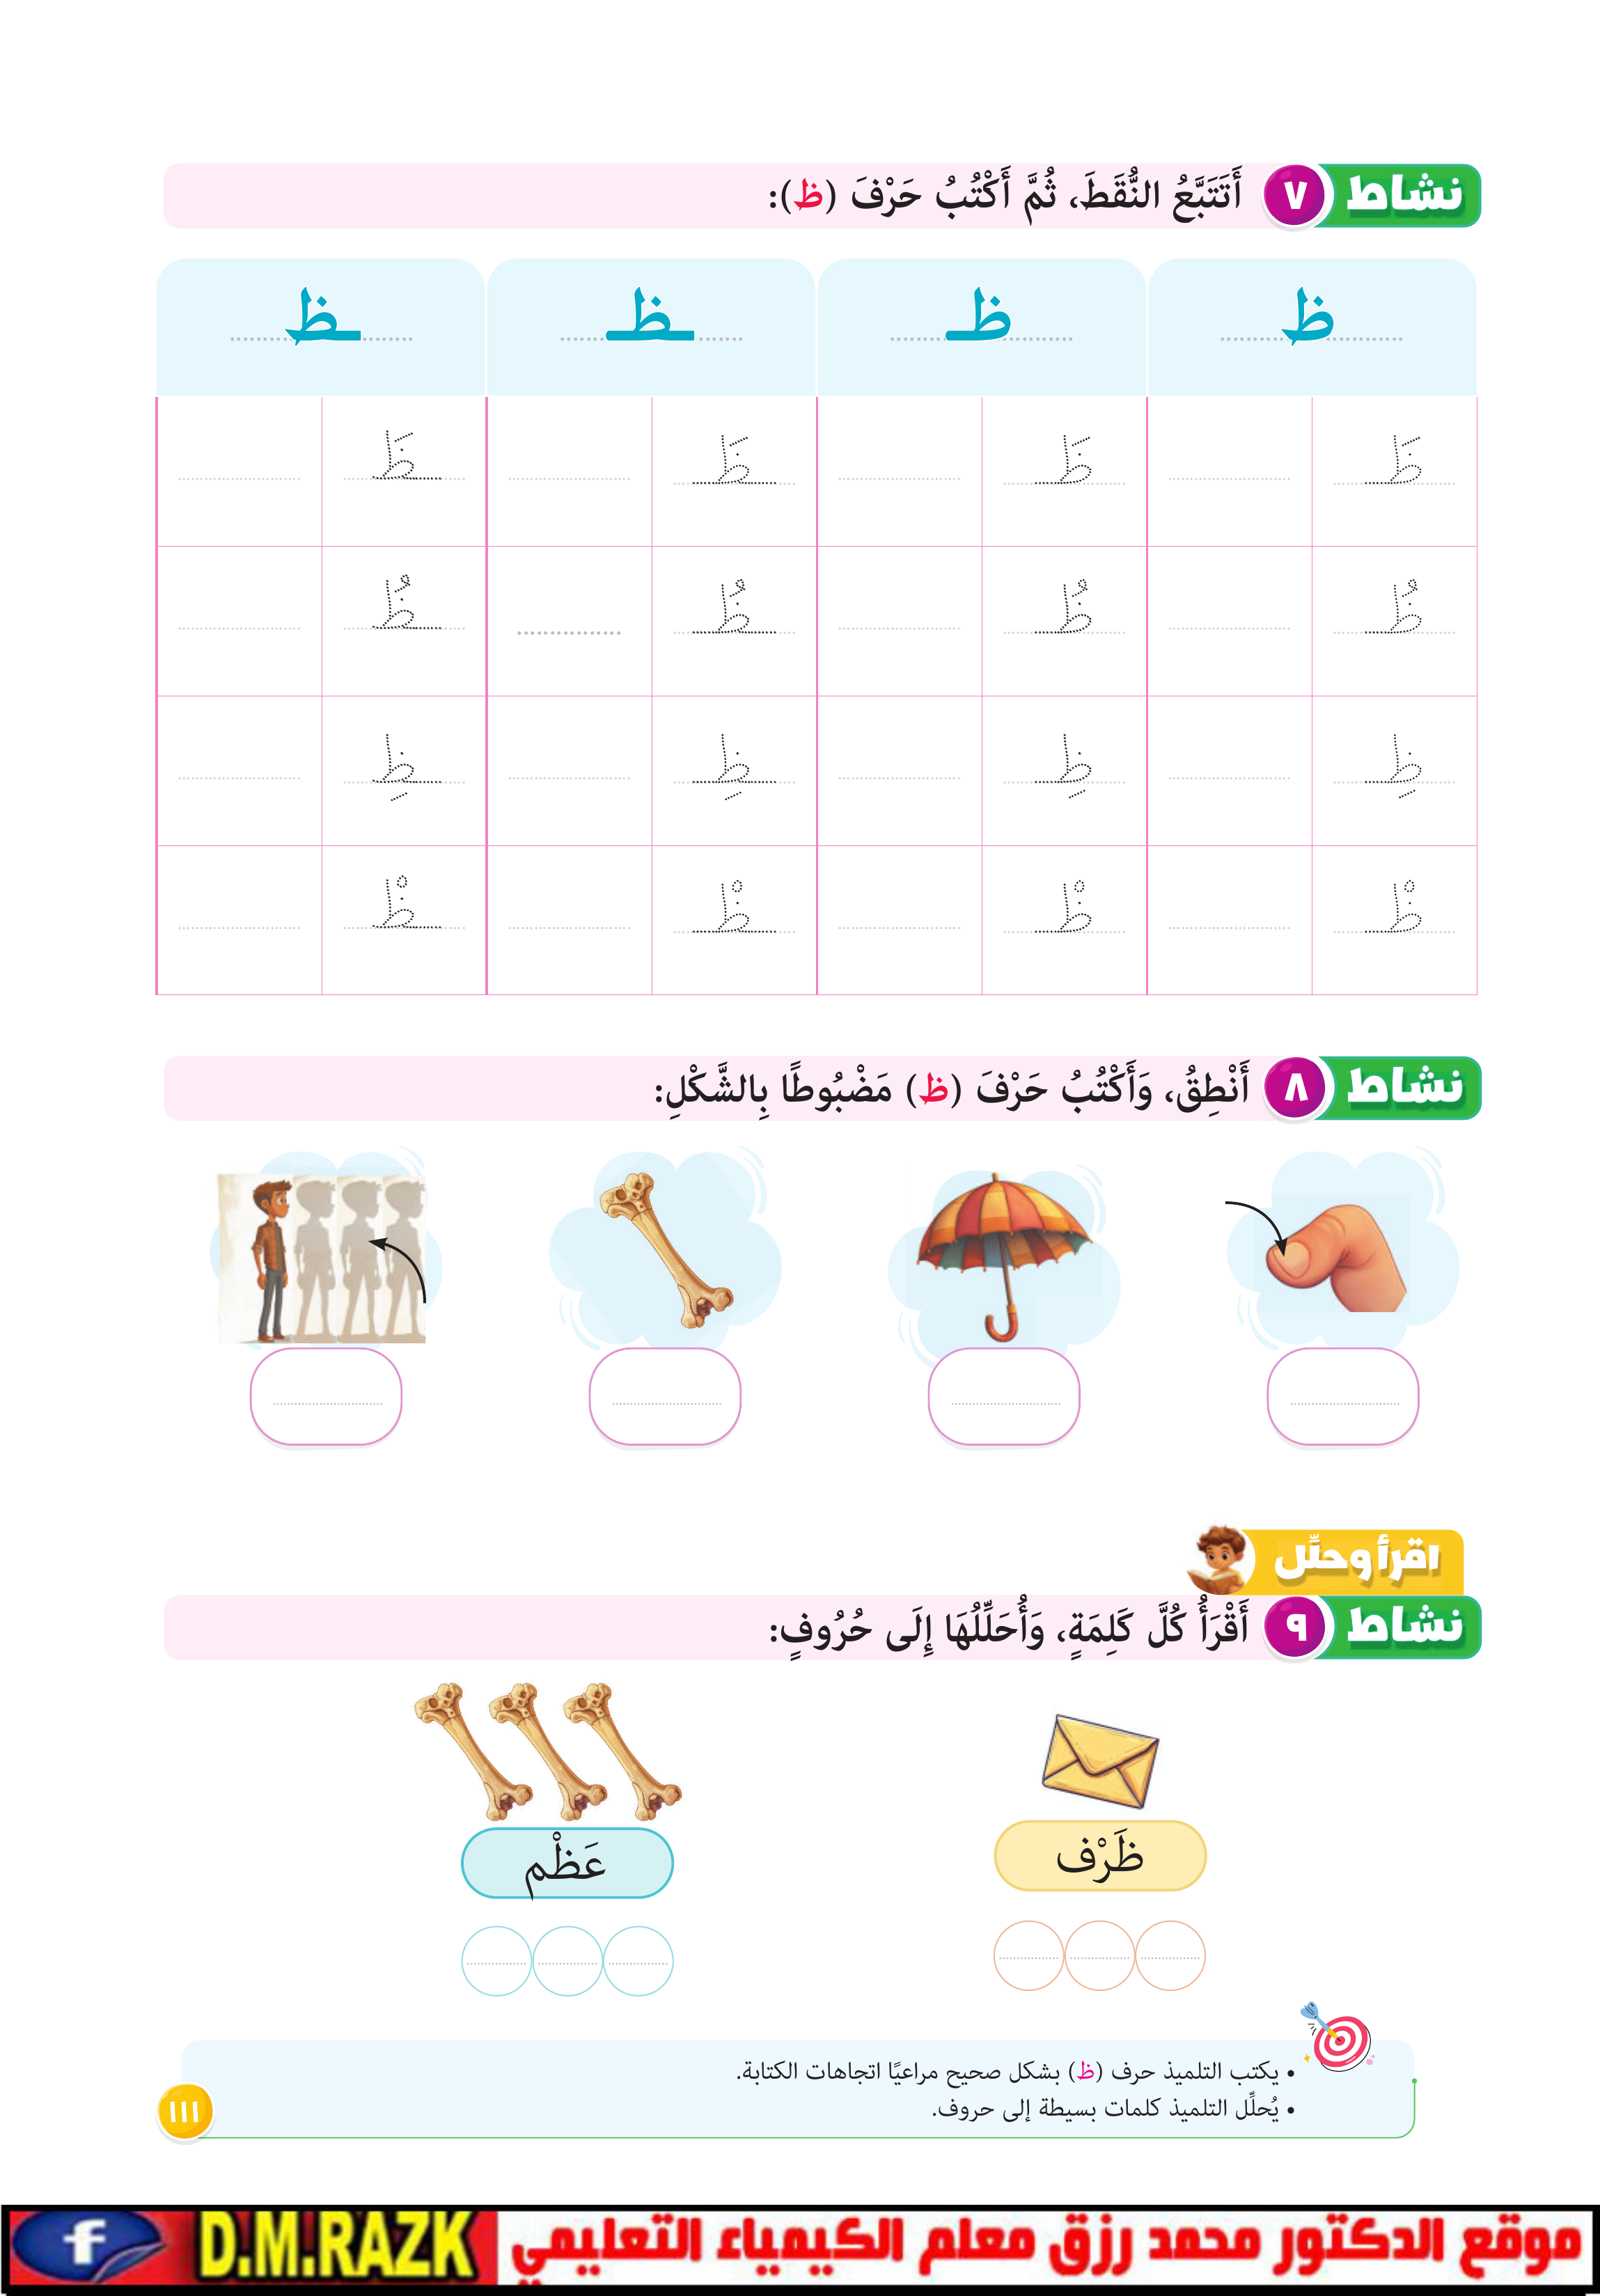 نشاط ٧ أَتَتَبَّعُ النُّقَطَ، ثُمَّ أَكْتُبُ حَرْفَ (ظ):
ظ ظـ ـظـ ـظ
ظَ ظَ ـظَ ـظَ
ظُ ظُ ـظُ ـظُ
ظِ ظِ ـظِ ـظِ
ظْ ظْ ـظْ ـظْ
نشاط ٨ أَنْطِقُ، وَأَكْتُبُ حَرْفَ (ظ) مَضْبُوطًا بِالشَّكْلِ:
اقرأ وحلِّل
نشاط ٩ أَقْرَأُ كُلَّ كَلِمَةٍ، وَأُحَلِّلُهَا إِلَى حُرُوفٍ:
ظَرْف عَظْم
• يكتب التلميذ حرف (ظ) بشكل صحيح مراعيًا اتجاهات الكتابة.
• يُحلِّل التلميذ كلمات بسيطة إلى حروف.
١١١
موقع الدكتور محمد رزق معلم الكيمياء التعليمي D.M.RAZK f